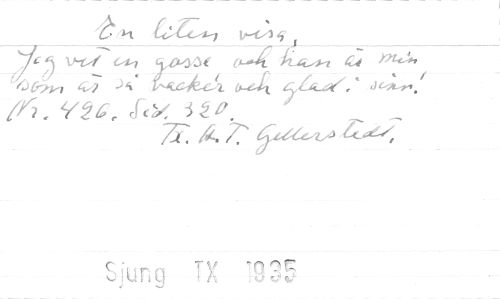 En liten visa,
Jag vet en gosse och han är min
som är så vacker och glad i sinn!
Nr. 426. Sid. 320.
Tx. A. T. Gellerstedt.
Sjung TX 1935